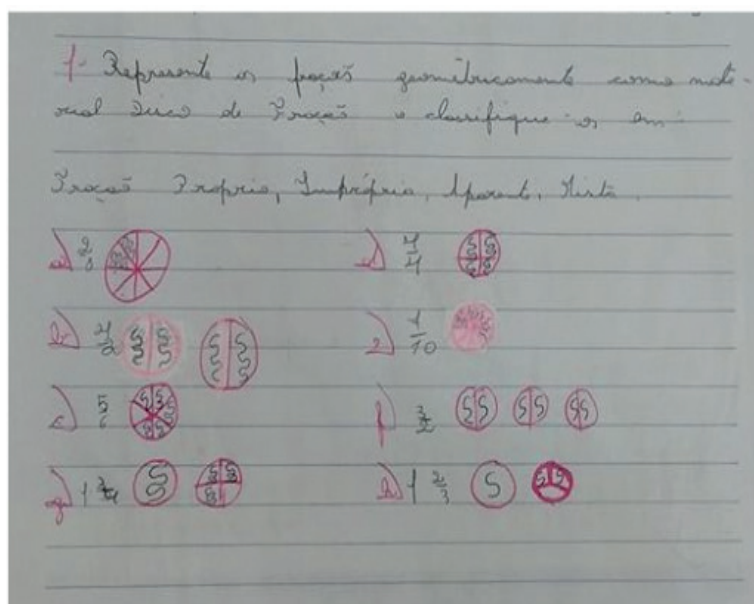 1- Represente as frações geometricamente como mate-
rial Disco de Frações e classifique-as em:
Fração Própria, Imprópria, Aparente, Mista.
a) 2/8 d) 4/4
b) 4/2 e) 1/10
c) 5/6 f) 3/2
g) 1 3/4 h) 1 2/3